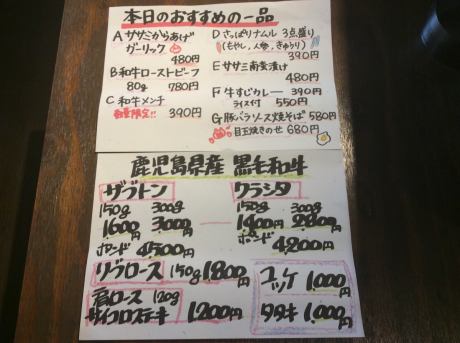 本日のおすすめの一品
A ササミからあげ
ガーリック
480円
B 和牛ローストビーフ
80g 780円
C 和牛メンチ
数量限定!! 390円
D さっぱりナムル 3点盛り
(もやし、人参、きゅうり)
390円
E ササミ南蛮漬け
480円
F 牛すじカレー 390円
ライス付 550円
G 豚バラソース焼そば 580円
目玉焼きのせ 680円
鹿児島県産 黒毛和牛
ザブトン
150g 300g
1600円 3000円
ポンド 4500円
クラシタ
150g 300g
1400円 2800円
ポンド 4200円
リブロース 150g 1800円
肩ロース 120g
サイコロステーキ 1200円
ユッケ 1,000円
タタキ 1,000円